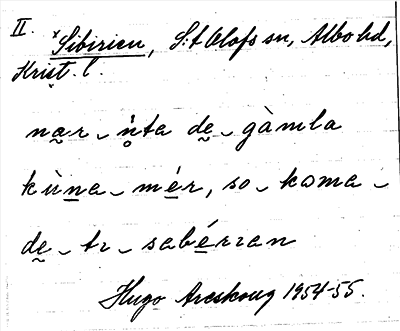 II. ×Sibirien, S:t Olofs sn, Albo hd,
Krist. l.
nær ⏑ n̥ta de ⏑ gàmla
kùna ⏑ mér, so ⏑ koma ⏑
de ⏑ tı ⏑ sabérıan
Hugo Areskoug 1954-55.